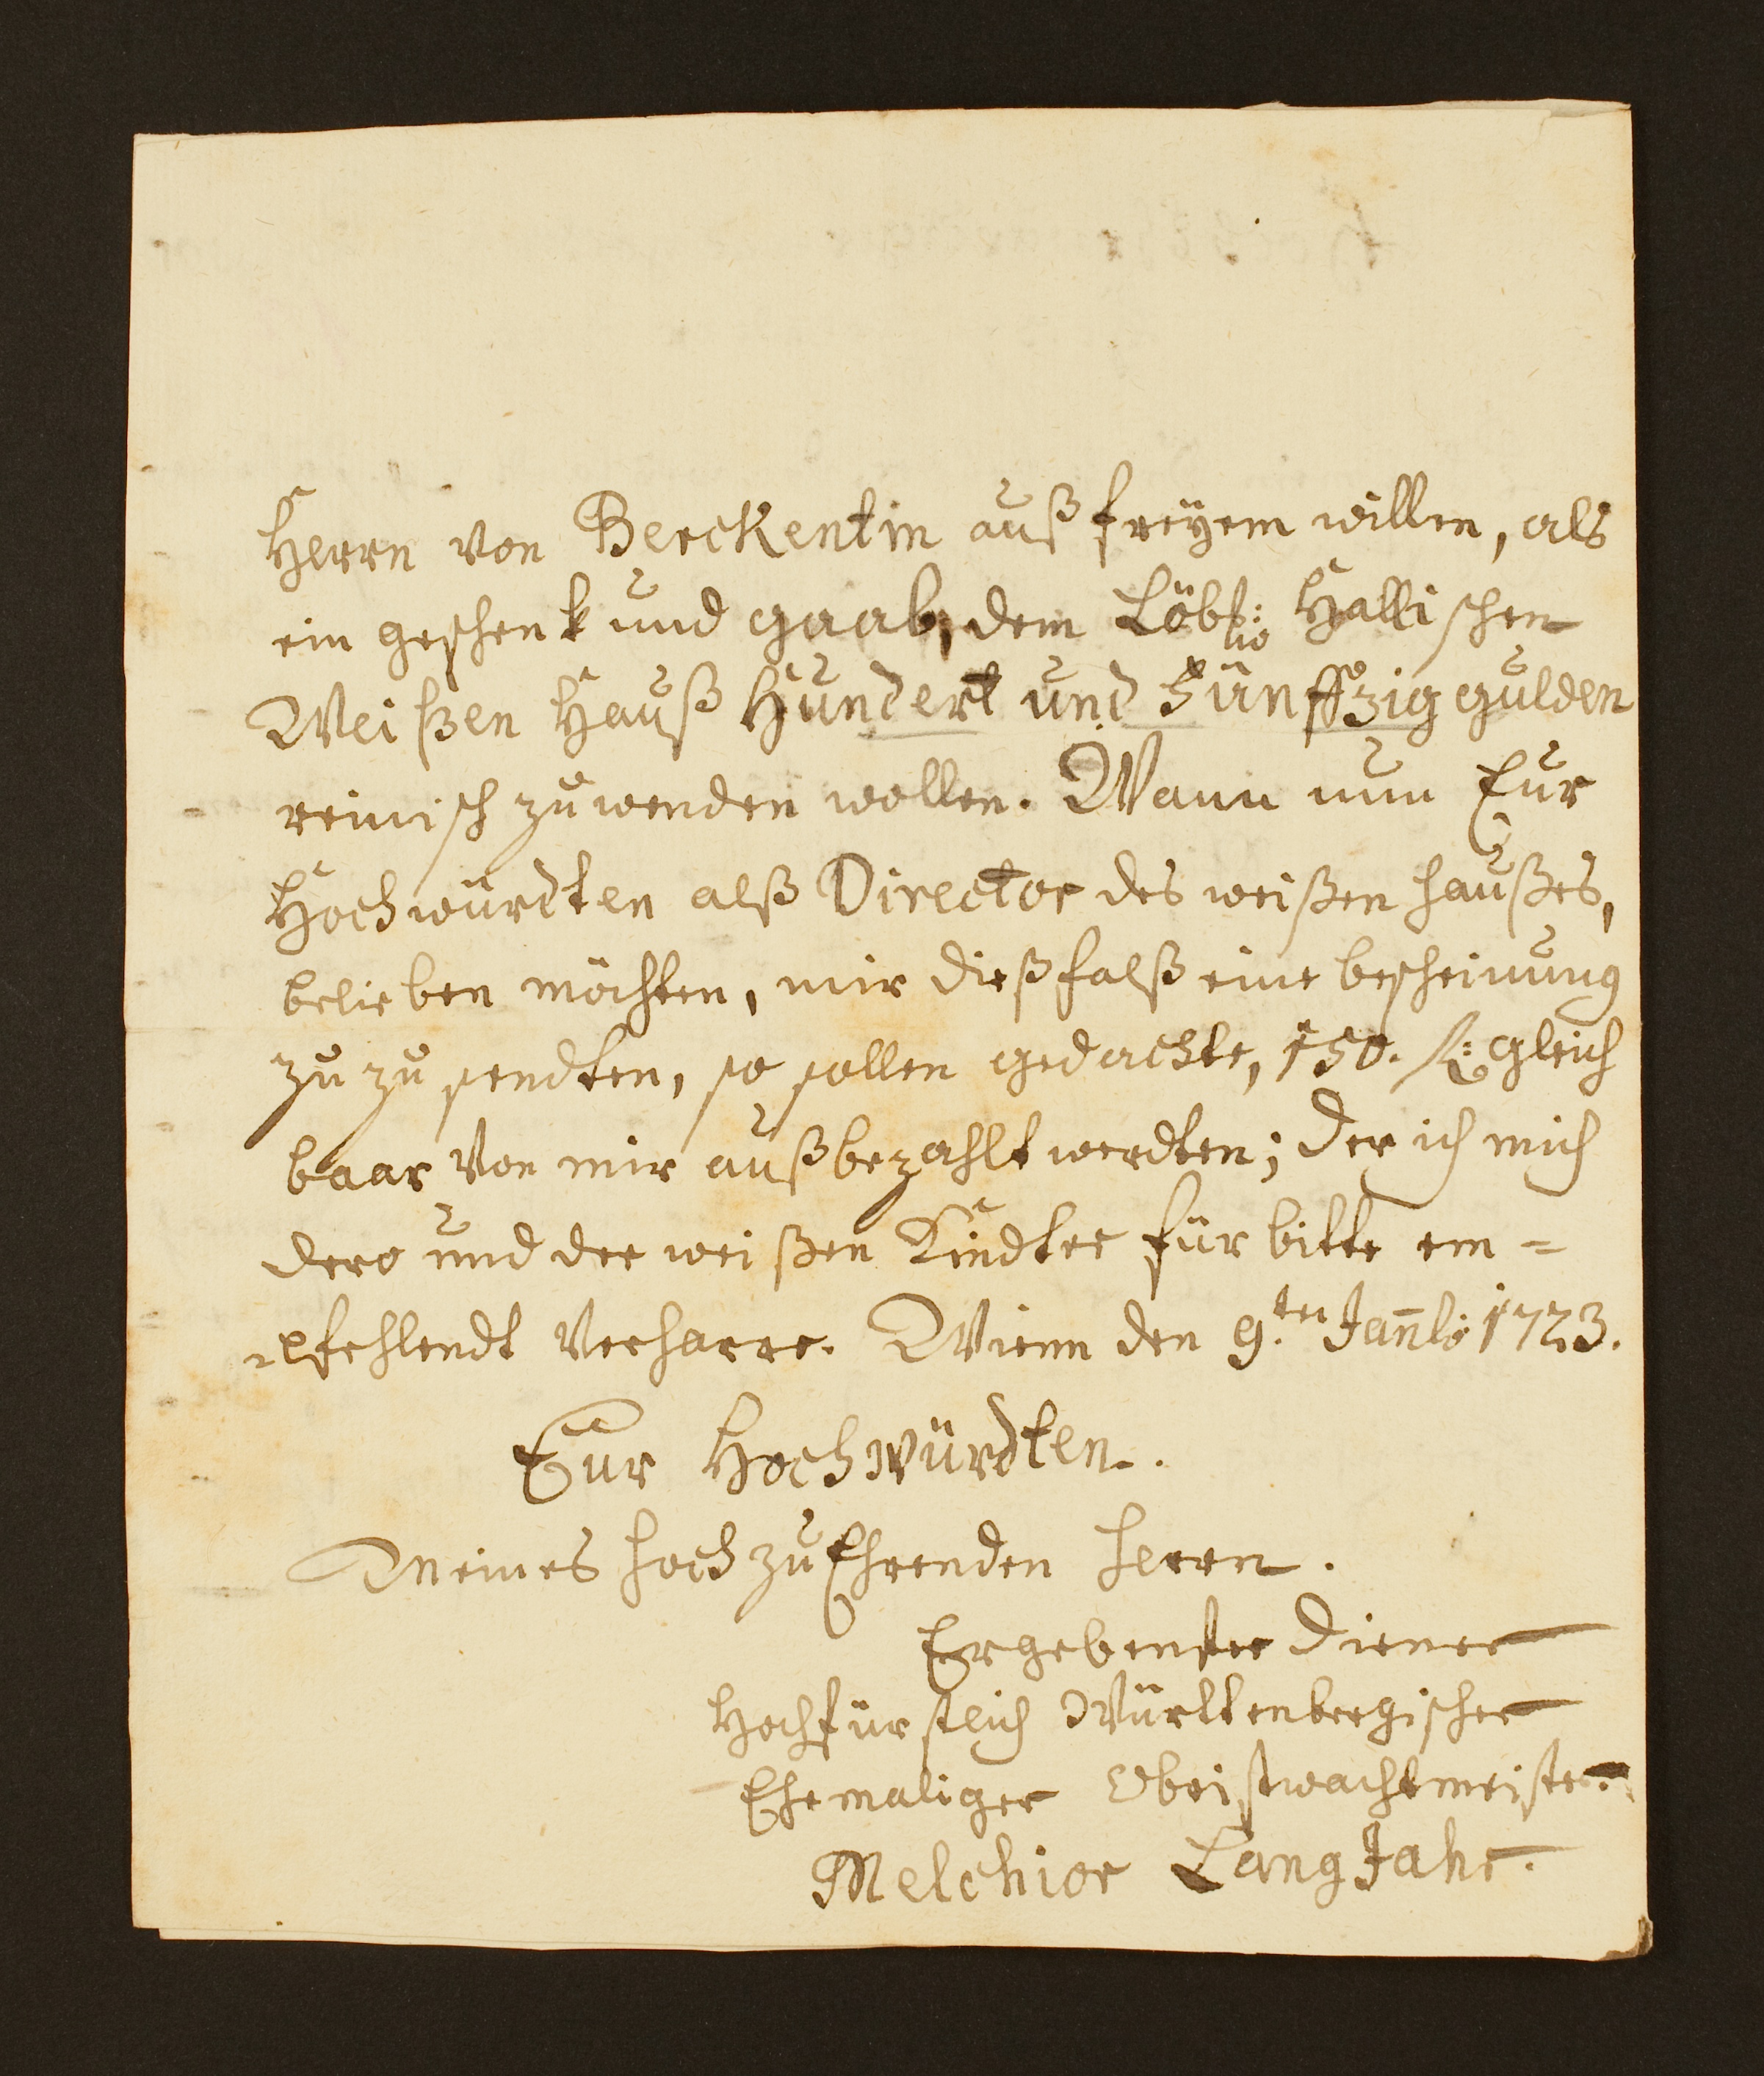 Herrn von Berckentin auß freyem willen, als
ein geschenk und gaab, dem Löbl: Hallischen
Weißen Hauß Hundert und Fünffzig gulden
reinisch zu wenden wollen. Wann nun Eur
Hochwürdten alß Director des weißen haußes,
belieben möchten, mir dießfalß eine bescheinung
zu zu sendten, so sollen gedachte, 150. f: gleich
baar von mir außbezahlt werdten; der ich mich
dero und der weißen Kindter fürbitte em=
pfehlendt verharre. Wienn den 9.ten 1723.
Eur Hochwürdten.
Meines hoch zu Ehrenden herrn.
Ergebenster diener
Hochfürstlich Württenbergischer
Ehemaliger Obristwachtmeister.
Melchior LangJahr.